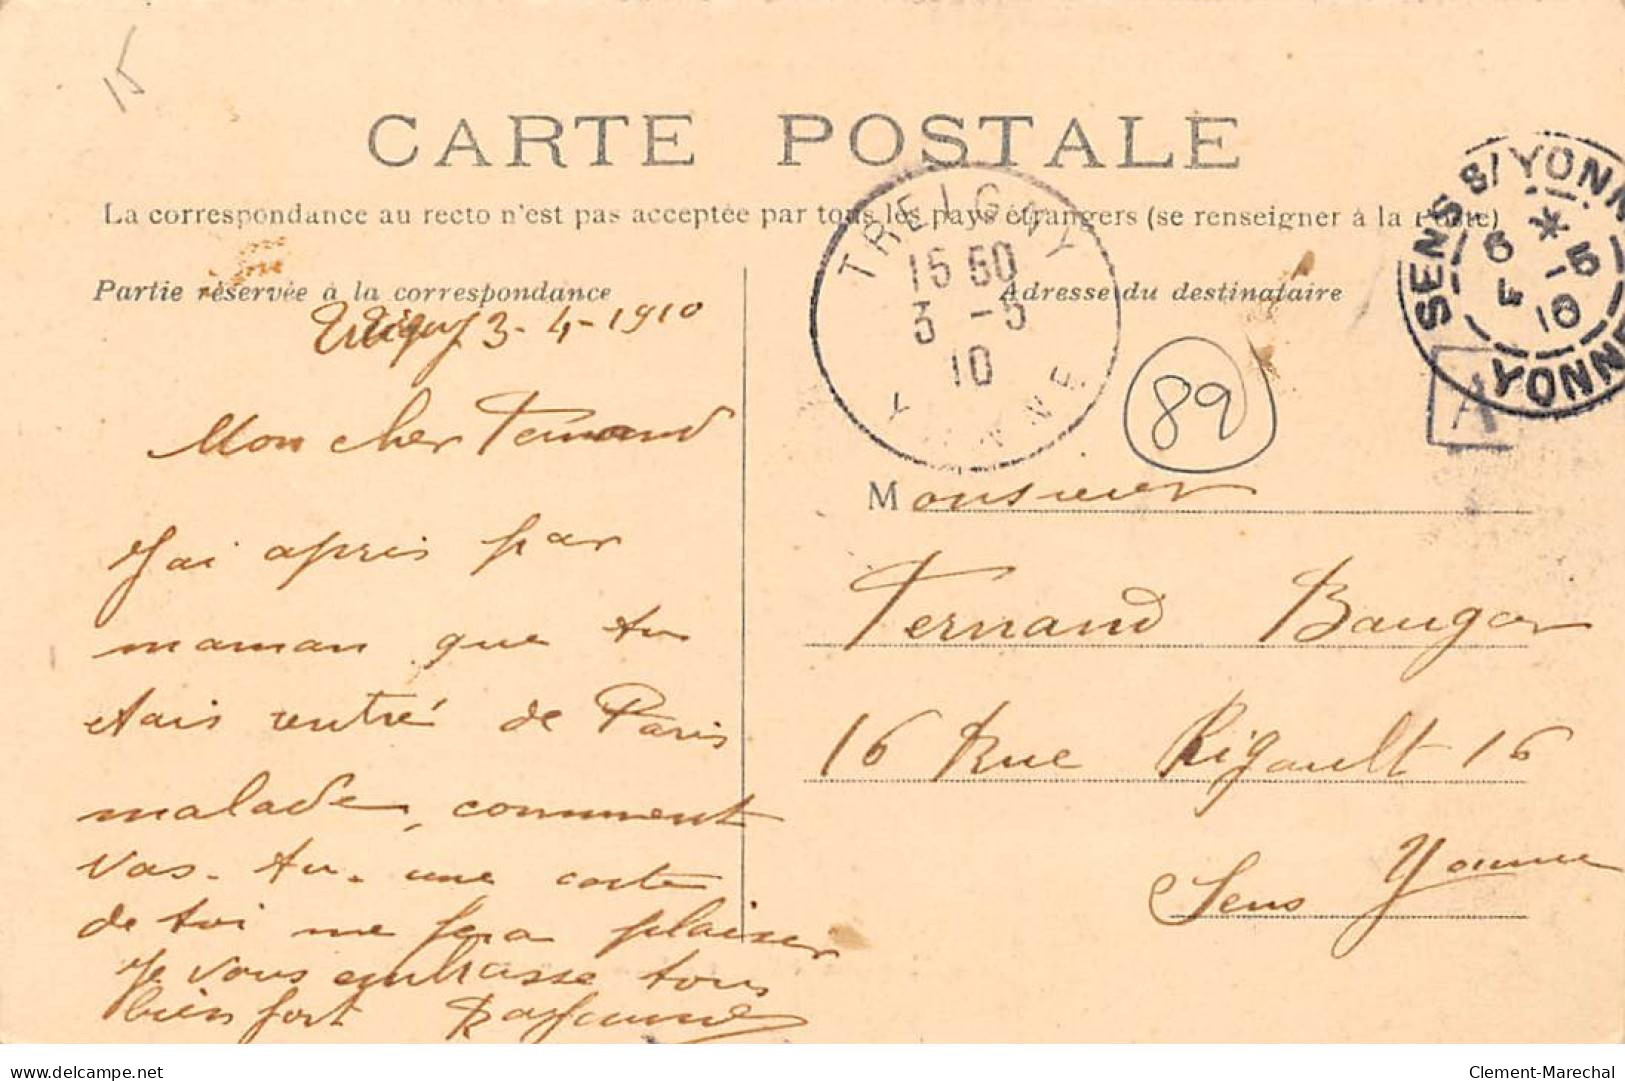 15
CARTE POSTALE
La correspondance au recto n'est pas acceptée par tous les pays étrangers (se renseigner à la Poste)
Partie réservée à la correspondance
Treigny 3-4-1910
Mon cher Fernand
J'ai apris par
maman que tu
étais rentré de Paris
malade, comment
vas-tu. une carte
de toi me fera plaisir
Je vous embrasse tous
bien fort
TREIGNY
15 60
3 -5
10
YONNE
Adresse du destinataire
89
SENS S/ YONNE
6 * -5
10
YONNE
A
Monsieur
Fernand Baugar
16 Rue Rigault 16
Sens Yonne
Clement-Marechal